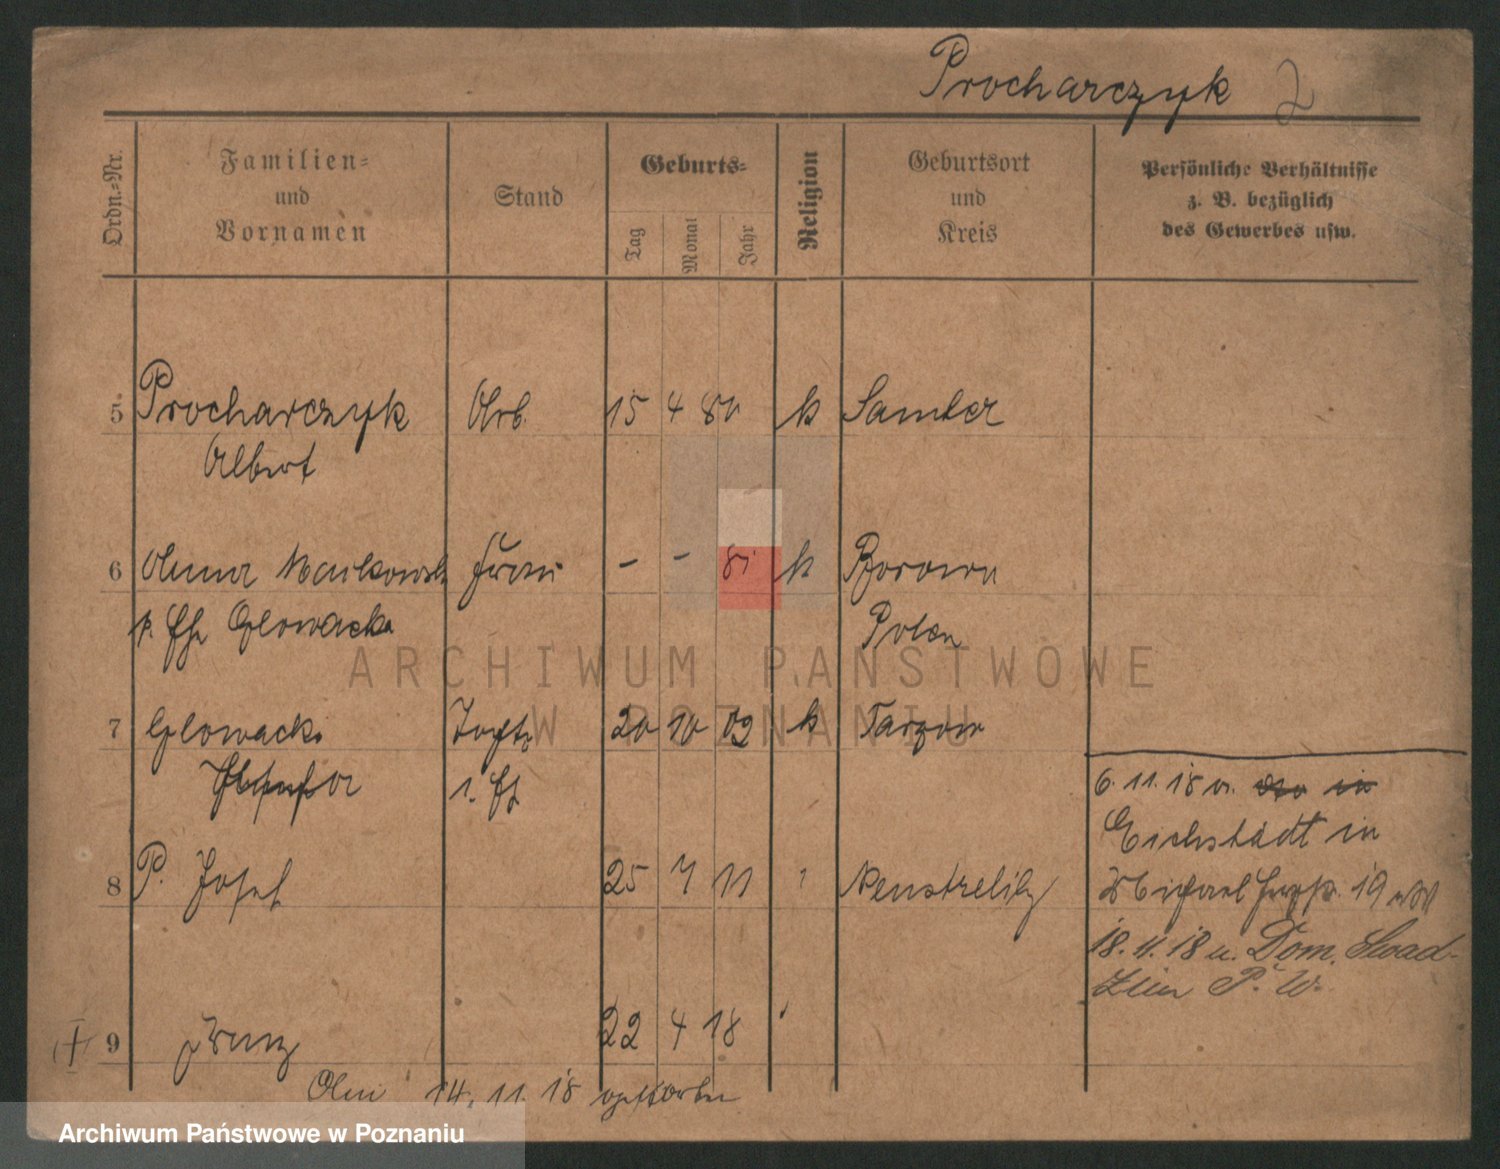 Procharczyk 2
Ordn.=Nr.
Familien=
und
Vornamen
Stand
Geburts=
Tag
Monat
Jahr
Religion
Geburtsort
und
Kreis
Persönliche Verhältnisse
z. B. bezüglich
des Gewerbes usw.
5 Procharczyk Arb. 15 4 80 k Samter
Albert
6 Anna Markowsk Frau - - 81 k
Polen
7 Glowacki 20 10 09 k
6. 11. 18 v.
Eichstädt in
8 P. Josef 25 7 11 Neustrelitz
19
18. 11. 18 n. Dom. Swad-
zim P. W.
9 Franz 22 4 18
Am 14. 11. 18 gestorben
ARCHIWUM PAŃSTWOWE
W POZNANIU
Archiwum Państwowe w Poznaniu